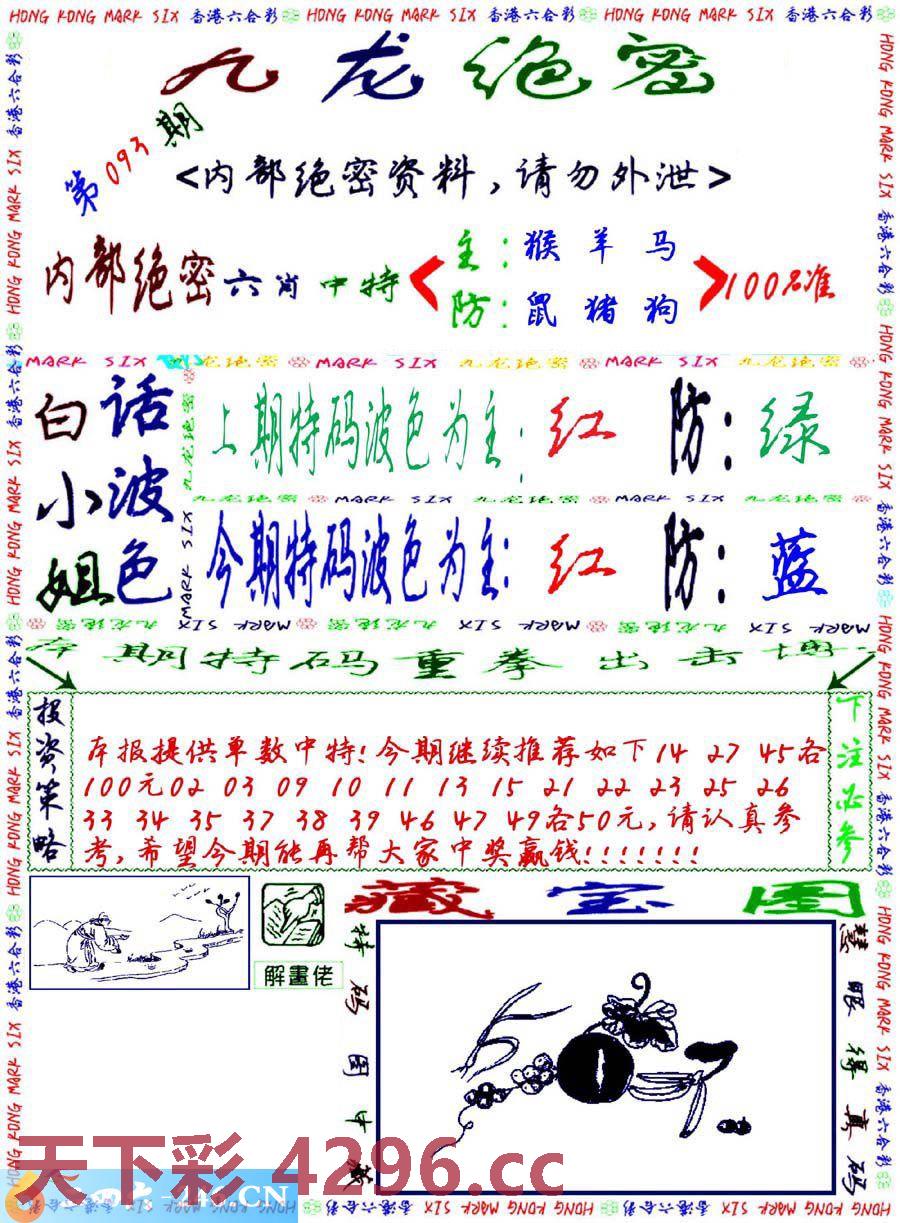 HONG KONG MARK SIX 香港六合彩 HONG KONG MARK SIX 香港六合彩 HONG KONG MARK SIX 香港六合彩
九龙绝密
第093期
<内部绝密资料,请勿外泄>
内部绝密六肖中特
主:猴羊马
防:鼠猪狗
100%准
MARK SIX 九龙绝密 MARK SIX 九龙绝密 MARK SIX 九龙绝密
白小姐
话波色
上期特码波色为主:红 防:绿
九龙绝密 MARK SIX 九龙绝密 MARK SIX 九龙绝密
今期特码波色为主:红 防:蓝
本期特码重拳出击博
投资策略
本报提供单数中特!今期继续推荐如下14 27 45各
100元02 03 09 10 11 13 15 21 22 23 25 26
33 34 35 37 38 39 46 47 49各50元,请认真参
考,希望今期能再帮大家中奖赢钱!!!!!!!
下注必参
藏宝图
解畫佬
特码图中藏
慧眼得真码
天下彩 4296.cc